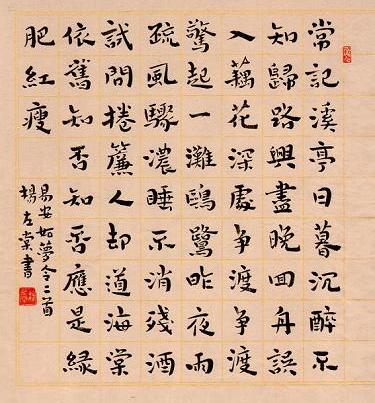 常記溪亭日暮沉醉不
知歸路興盡晚回舟誤
入藕花深處爭渡爭渡
驚起一灘鷗鷺昨夜雨
疏風驟濃睡不消殘酒
試問捲簾人却道海棠
依舊知否知否應是綠
肥紅瘦
易安如夢令二首
楊左棠書